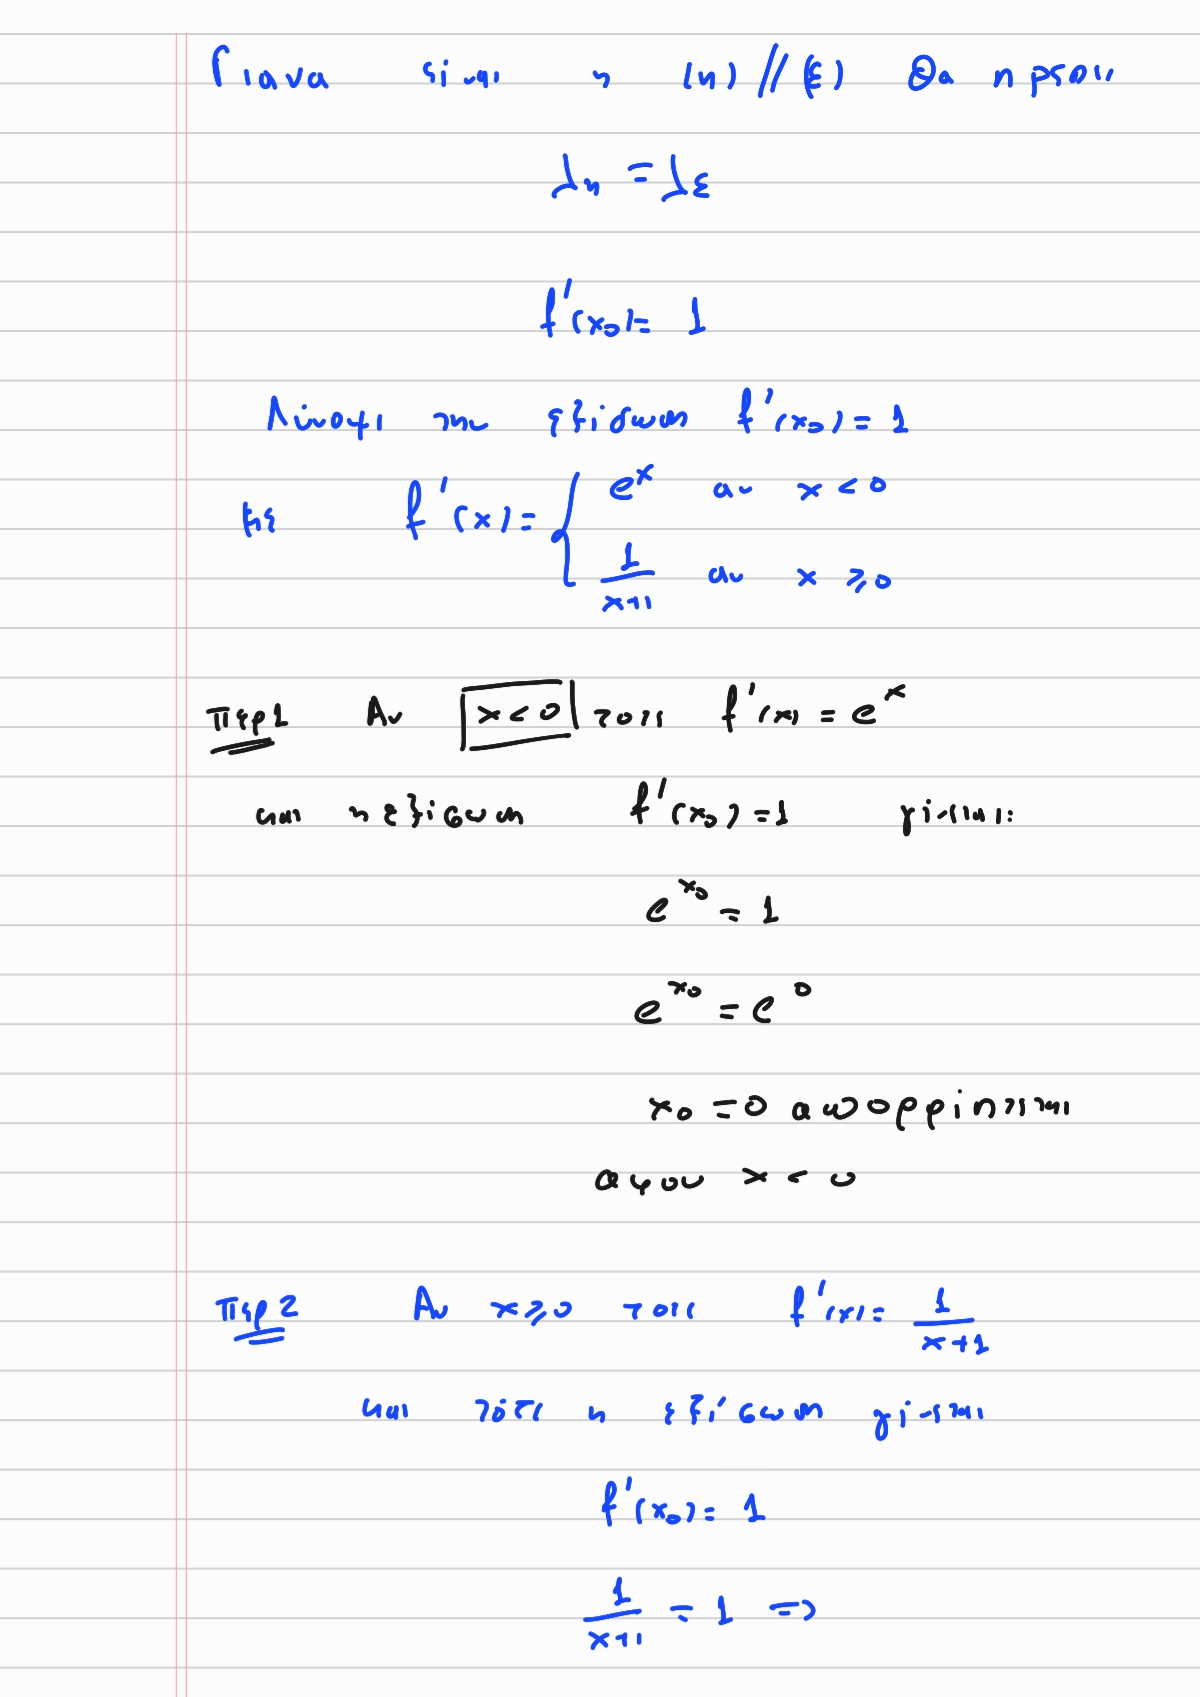 Για να είναι η (η) // (ε) Θα πρέπει
λη = λε
f'(x₀) = 1
Λύνουμε την εξίσωση f'(x₀) = 1
με f'(x) = { eˣ αν x < 0
1/(x+1) αν x ≥ 0
Περ 1 Αν x < 0 τότε f'(x) = eˣ
και η εξίσωση f'(x₀) = 1 γίνεται:
e^x₀ = 1
e^x₀ = e^0
x₀ = 0 απορρίπτεται
αφού x < 0
Περ 2 Αν x ≥ 0 τότε f'(x) = 1/(x+1)
και τότε η εξίσωση γίνεται
f'(x₀) = 1
1/(x+1) = 1 ⇒